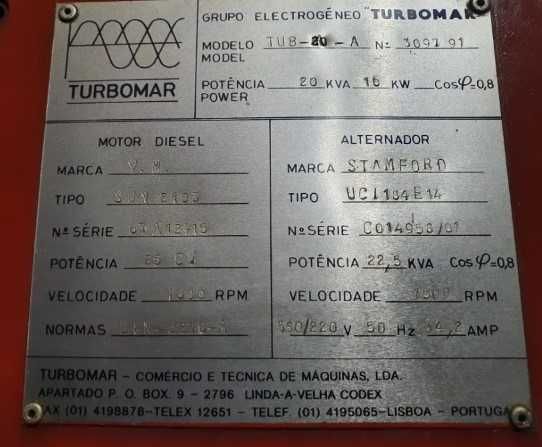 GRUPO ELECTROGÉNEO "TURBOMAR"
MODELO TUB-20-A Nº 3097 91
MODEL
POTÊNCIA 20 KVA 16 KW Cosφ=0,8
POWER
TURBOMAR
MOTOR DIESEL
MARCA V.M.
TIPO
Nº SÉRIE
POTÊNCIA CV
VELOCIDADE RPM
NORMAS
ALTERNADOR
MARCA STAMFORD
TIPO UCI184E14
Nº SÉRIE C014958/01
POTÊNCIA 22,5 KVA Cosφ=0,8
VELOCIDADE RPM
V 50 Hz AMP
TURBOMAR - COMÉRCIO E TECNICA DE MÁQUINAS, LDA.
APARTADO P. O. BOX. 9 - 2796 LINDA-A-VELHA CODEX
FAX (01) 4198878-TELEX 12651 - TELEF. (01) 4195065-LISBOA - PORTUGAL